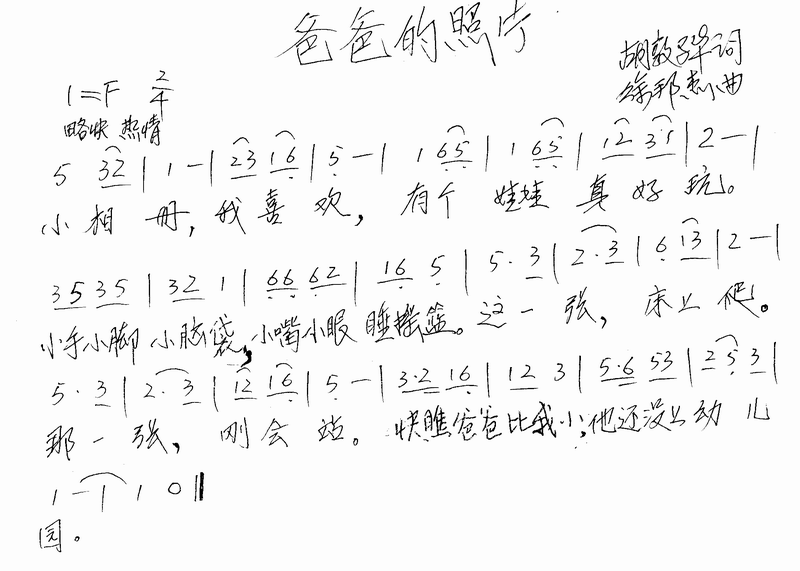 爸爸的照片
胡敦骅词
1=F 2/4
徐邦杰曲
略快 热情
5 32 | 1 - | 23 16 | 5 - | 1 65 | 1 65 | 12 31 | 2 - |
小相册，我喜欢，有个娃娃真好玩。
35 35 | 32 1 | 66 62 | 16 5 | 5· 3 | 2· 3 | 6 13 | 2 - |
小手小脚小脑袋，小嘴小眼睡摇篮。这一张，床上爬。
5· 3 | 2· 3 | 12 16 | 5 - | 3·2 16 | 12 3 | 5·6 53 | 25 3 |
那一张，刚会站。快瞧爸爸比我小，他还没上幼儿
1 - | 1 0 ‖
园。